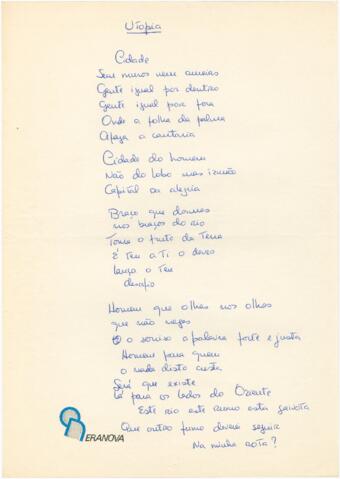 Utopia
Cidade
Sem muros nem ameias
Gente igual por dentro
Gente igual por fora
Onde a folha da palma
Afaga a cantaria
Cidade do homem
Não do lobo mas irmão
Capital da alegria
Braço que dormes
nos braços do rio
Toma o fruto da Terra
É teu a Ti o deves
lança o Teu
desafio
Homem que olhas nos olhos
que não negas
o sorriso a palavra forte e justa
Homem para quem
o nada disto custa
Será que existe
Lá para os lados do Oriente
Este rio este rumo esta gaivota
Que outro fumo deverei seguir
Na minha rota?
ERANOVA